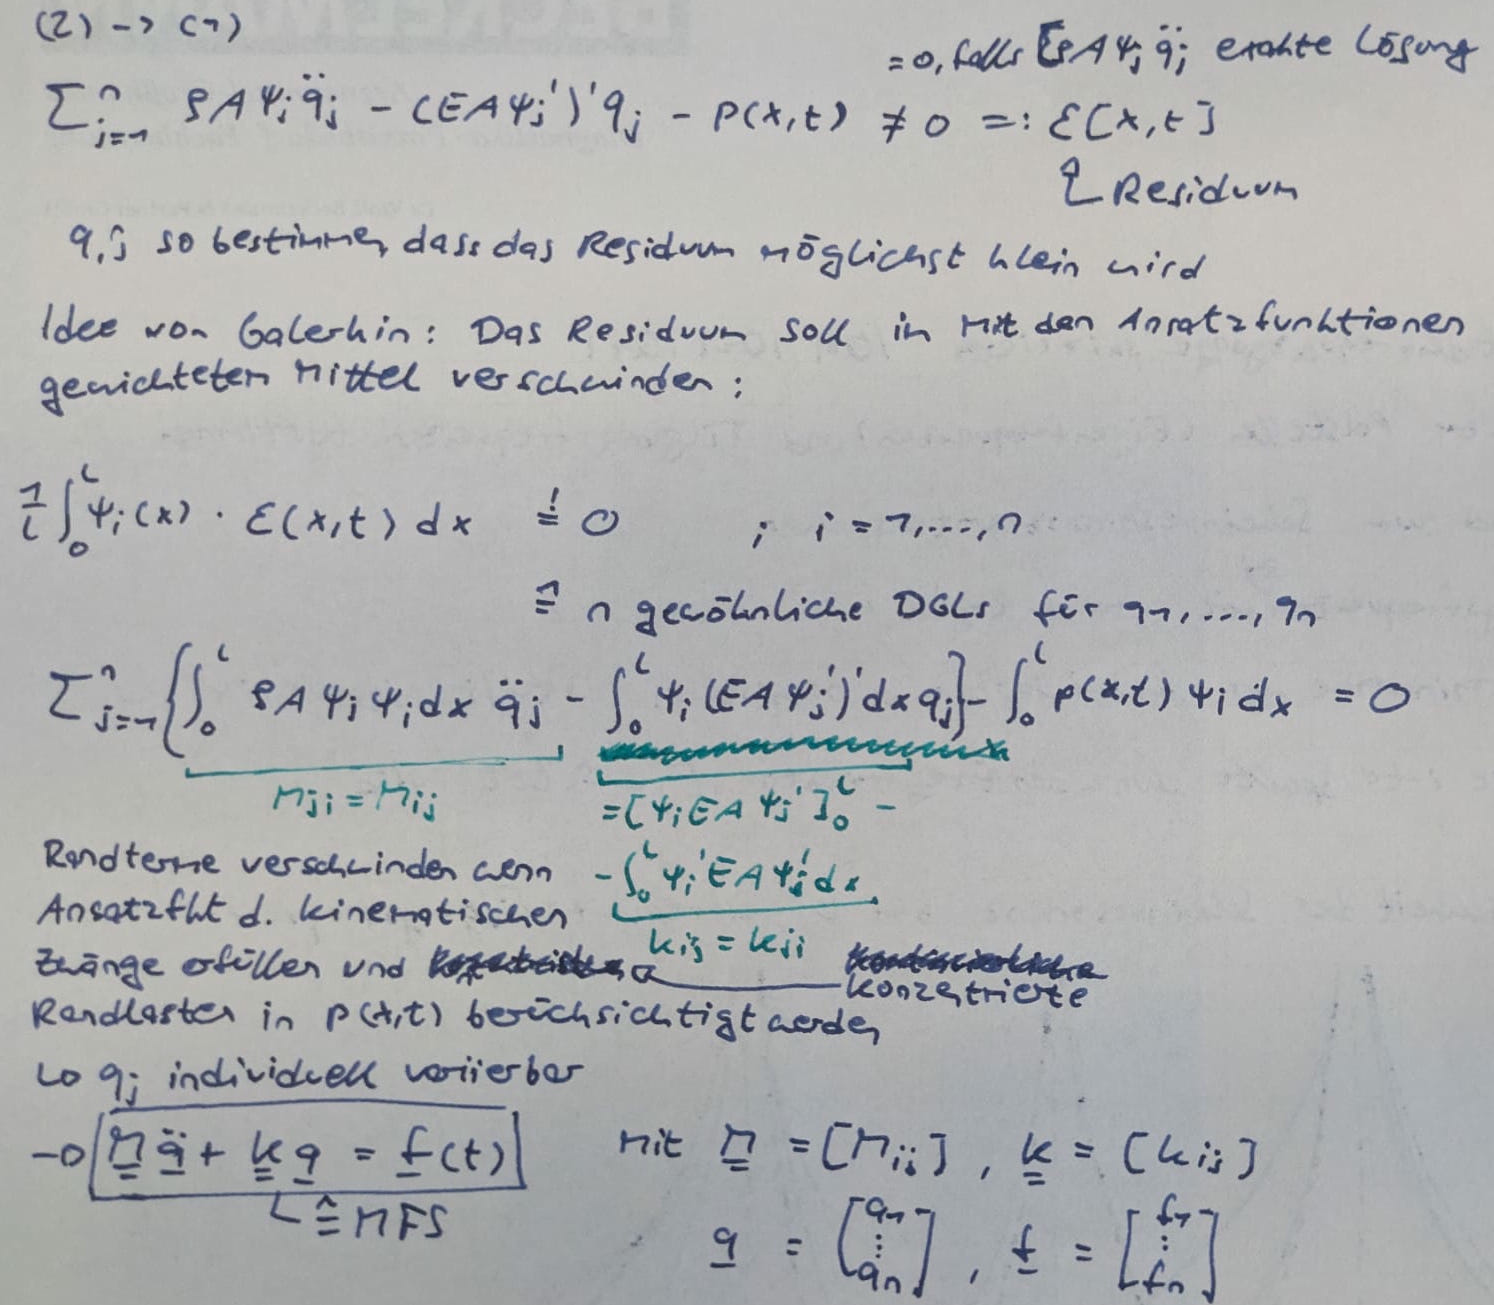 (2) -> (1)
= 0, falls ΣρAψⱼ q̈ⱼ exakte Lösung
Σⁿⱼ₌₁ ρAψⱼq̈ⱼ - (EAψⱼ')'qⱼ - p(x,t) ≠ 0 =: ε[x,t]
Residuum
q,j so bestimmen, dass das Residuum möglichst klein wird
Idee von Galerkin: Das Residuum soll im mit den Ansatzfunktionen
gewichteten Mittel verschwinden:
1/l ∫₀ˡ ψᵢ(x) · ε(x,t) dx =! 0 ; i = 1,...,n
≙ n gewöhnliche DGLs für q1,...,qn
Σⁿⱼ₌₁ {∫₀ˡ ρAψⱼψᵢdx q̈ⱼ - ∫₀ˡ ψᵢ(EAψⱼ')'dx qⱼ} - ∫₀ˡ p(x,t) ψᵢ dx = 0
Mji = Mij
= [ψᵢEAψⱼ']₀ˡ -
Randterme verschwinden wenn
- ∫₀ˡ ψᵢ'EAψⱼ'dx
Ansatzfkt d. kinematischen
kij = kji
Zwänge erfüllen und
konzentrierte
Randlasten in p(x,t) berücksichtigt werden
qⱼ individuell variierbar
M q̈ + k q = f(t)
mit M = [Mij], k = [kij]
≙ MFS
q = [q1 ⋮ qn], f = [f1 ⋮ fn]